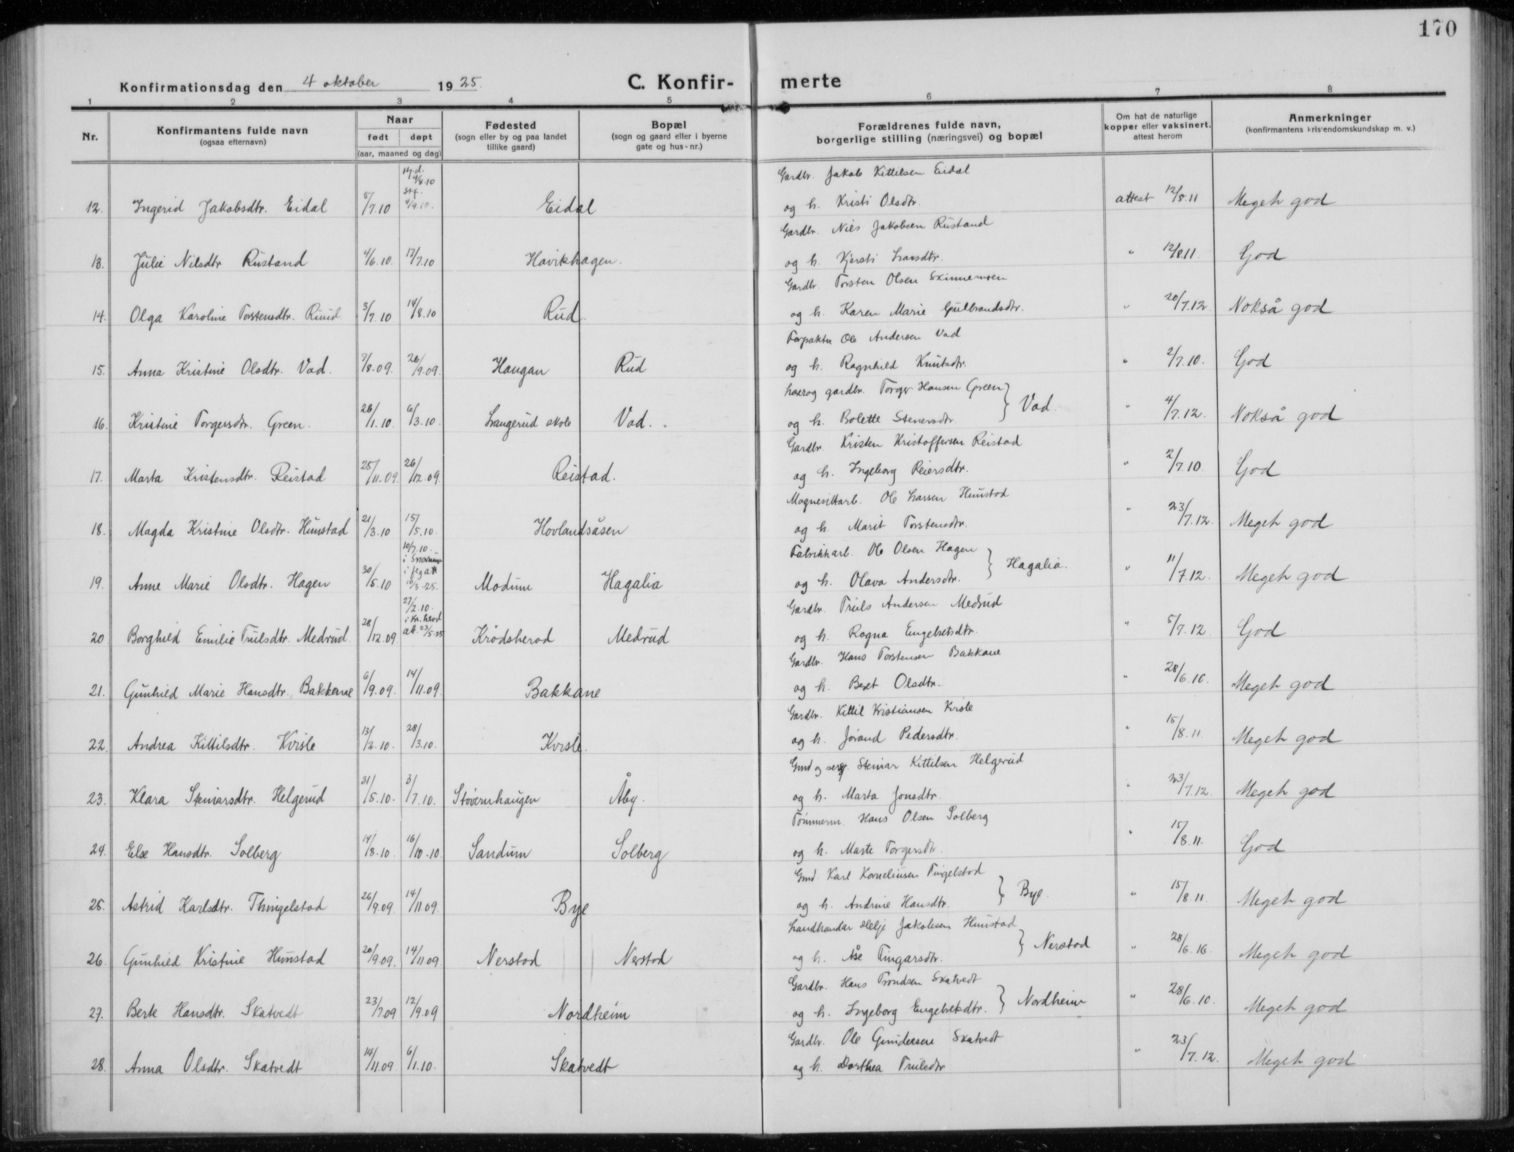 170
Konfirmationsdag den 4 oktober 1925. C. Konfir- merte
1 2 3 4 5 6 7 8
Nr. Konfirmantens fulde navn (ogsaa efternavn) Naar født døpt (aar, maaned og dag) Fødested (sogn eller by og paa landet tillike gaard) Bopæl (sogn og gaard eller i byerne gate og hus-nr.) Forældrenes fulde navn, borgerlige stilling (næringsvei) og bopæl Om hat de naturlige kopper eller vaksinert, attest herom Anmerkninger (konfirmantens kristendomskundskap m. v.)
Gardbr. Jakob Kittilsen Eidal
12. Ingerid Jakobsdtr. Eidal 5/7.10 Eidal og h. Kristi Olsdtr. attest 12/8.11 Meget god
Gardbr. Nils Jakobsen Rustand
13. Julie Nilsdtr Rustand 4/6.10 17/7.10 Havikhagen. og h. Kjersti Larsdtr. " 12/8.11 God
Gardbr. Torsten Olsen
14. Olga Karoline Torstensdtr. Ruud 3/7.10 14/8.10 Rud. og h. Karen Marie Gulbrandsdtr. " 20/7.12 Nokså god
Forpakter Ole Andersen Vad
15. Anna Kristine Olsdtr. Vad. 7/8.09. 26/9.09. Haugan Rud og h. Ragnhild Knutsdtr. " 2/7.10. God
gardbr. Torger Hansen Green
16. Kristine Torgersdtr. Green. 28/1.10 6/3.10. Langerud skole Vad. og h. Bolette Steinersdtr. } Vad " 4/7.12. Nokså god
Gardbr Kristen Kristoffersen Reistad
17. Marta Kristensdtr. Reistad 25/11.09 26/12.09. Reistad. og h. Ingeborg Reiersdtr. " 2/7.10 God
Magnesittarb. Ole Larsen Hunstad
18. Magda Kristine Olsdtr. Hunstad 21/3.10 15/5.10. Hovlandsåsen og h. Marit Torstensdtr. " 23/7.12. Meget god
10/7.10. i Snarum Fabrikkarb. Ole Olsen Hagen
19. Anne Marie Olsdtr. Hagen 30/5.10 Modum Hagalia og h. Olava Andersdtr. } Hagalia. " 11/7.12. Meget god
27/2.10. Gardbr. Truls Andersen Medrud
20 Borghild Emilie Trulsdtr. Medrud 28/12.09 Krødsherad Medrud og h. Ragna Engebretsdtr. " 5/7.12 God
Gardbr. Hans Torstensen Bakkane
21. Gunhild Marie Hansdtr. Bakkane 6/9.09. 14/11.09 Bakkane og h. Beret Olsdtr. " 28/6.10. Meget god
Gardbr. Kittil Kristiansen Kvisle
22. Andrea Kittilsdtr. Kvisle 13/2.10. 28/3.10. Kvisle. og h. Jørand Pedersdtr. " 15/8.11. Meget god
Steinar Kittilsen Helgerud
23. Klara Steinarsdtr. Helgerud 31/5.10. 3/7.10. Støvernhaugen Åby. og h. Marta Jonsdtr. " 23/7.12 Meget god
Tømmerm. Hans Olsen Solberg
24. Else Hansdtr. Solberg 14/8.10. 16/10.10 Sandum Solberg og h. Marte Torgersdtr. " 15/8.11. God
Gmd. Karl Korneliusen Tingelstad
25. Astrid Karlsdtr. Thingelstad 26/9.09. 14/11.09 Bye og h. Andrine Hansdtr. } Bye " 15/8.11 Meget god
Landhandler Helje Jakobsen Hunstad
26. Gunhild Kristine Hunstad 20/9.09. 14/11.09 Nerstad Nerstad og h. Åse Tingarsdtr. } Nerstad " 28/6.10. Meget god
Gardbr. Hans Trondsen Skatvedt
27. Berte Hansdtr. Skatvedt 23/7.09 12/9.09 Nordheim og h. Ingeborg Engebretsdtr. } Nordheim " 28/6.10. Meget god
Gardbr. Ole Gundersen Skatvedt
28. Anna Olsdtr. Skatvedt 14/11.09 6/1.10. Skatvedt og h. Dorthea Trulsdtr " 23/7.12. Meget god